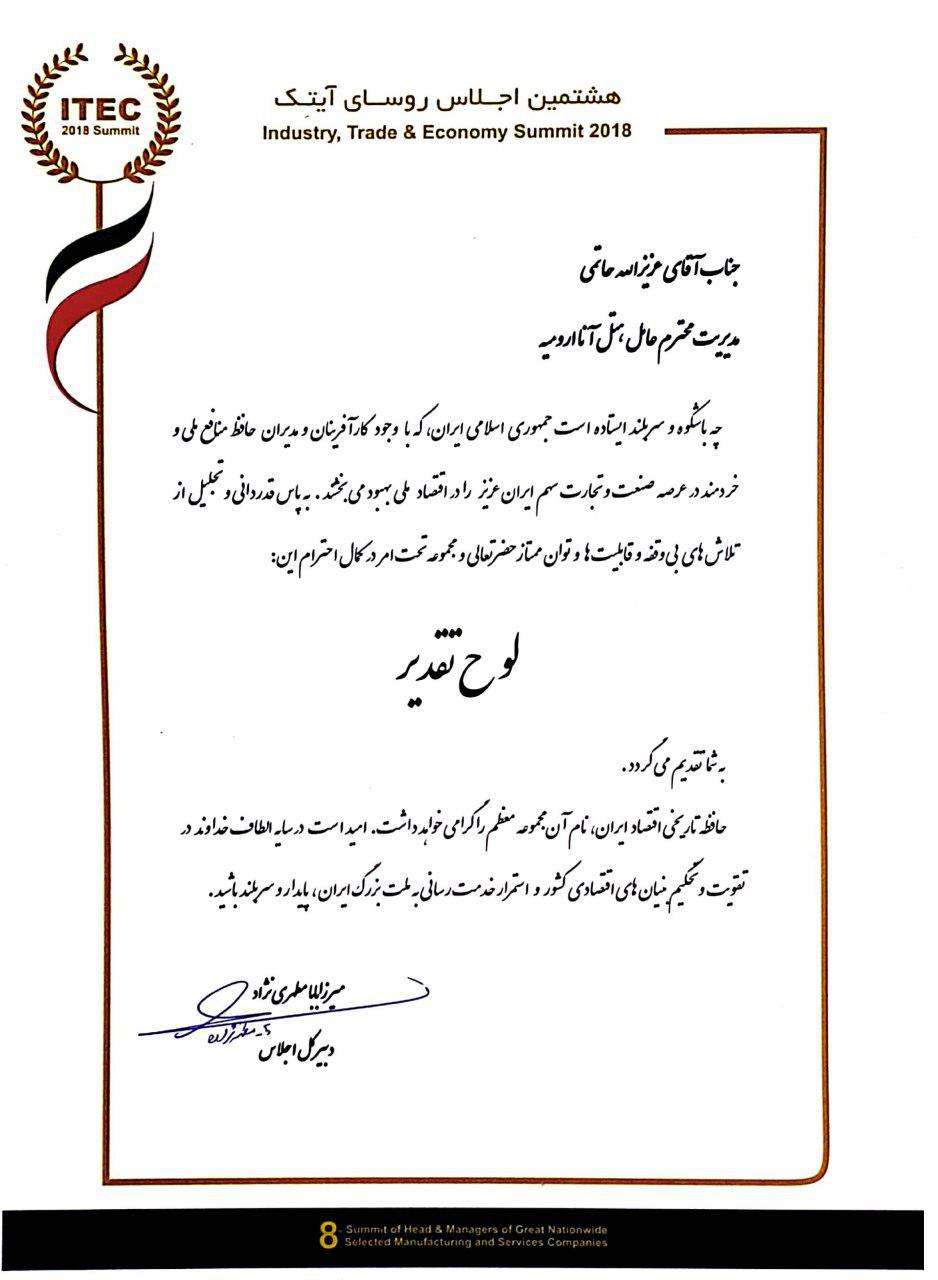 ITEC
2018 Summit
هشتمین اجلاس روسای آیتِک
Industry, Trade & Economy Summit 2018
جناب آقای عزیزالله حاتمی
مدیریت محترم عامل هتل آنا ارومیه
چه باشکوه و سربلند ایستاده است جمهوری اسلامی ایران، که با وجود کارآفرینان و مدیران حافظ منافع ملی و
خردمند در عرصه صنعت و تجارت سهم ایران عزیز را در اقتصاد ملی بهبود می بخشند. به پاس قدردانی و تجلیل از
تلاش های بی وقفه و قابلیت ها و توان ممتاز حضرتعالی و مجموعه تحت امر در کمال احترام این:
لوح تقدیر
به شما تقدیم می گردد.
حافظه تاریخی اقتصاد ایران، نام آن مجموعه معظم را گرامی خواهد داشت. امید است در سایه الطاف خداوند در
تقویت و تحکیم بنیان های اقتصادی کشور و استمرار خدمت رسانی به ملت بزرگ ایران، پایدار و سربلند باشید.
میرزابابا مطهری نژاد
دبیر کل اجلاس
8th Summit of Head & Managers of Great Nationwide
Selected Manufacturing and Services Companies